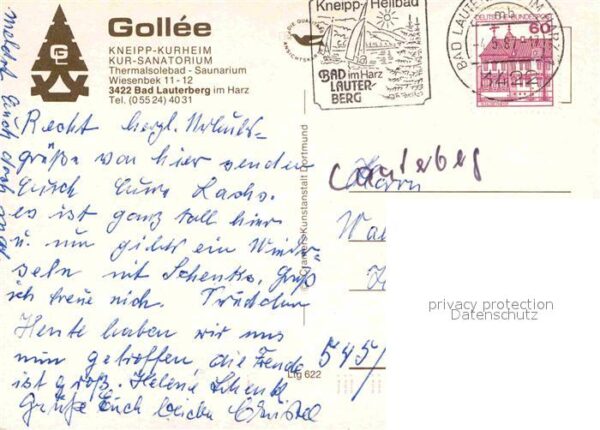 Gollée
KNEIPP-KURHEIM
KUR-SANATORIUM
Thermalsolebad - Saunarium
Wiesenbek 11 - 12
3422 Bad Lauterberg im Harz
Tel. (0 55 24) 40 31
Kneipp-Heilbad
BAD im Harz
LAUTER-
BERG
BAD LAUTERBERG IM HARZ
3422
DEUTSCHE BUNDESPOST
60
Recht herzl. Urlaubs-
grüße von hier senden
Euch Eure
es ist ganz toll hier
u. nun gibts ein Wieder-
sehn mit Schenks, Gruß
ich freue mich.
Heute haben wir uns
nun getroffen, die Freude
ist groß. Helene Schenk
Grüße Euch beide Christel
meldet Euch doch mal
Cramers Kunstanstalt Dortmund
Lauterberg
Herrn
545
Ltg 622
privacy protection
Datenschutz